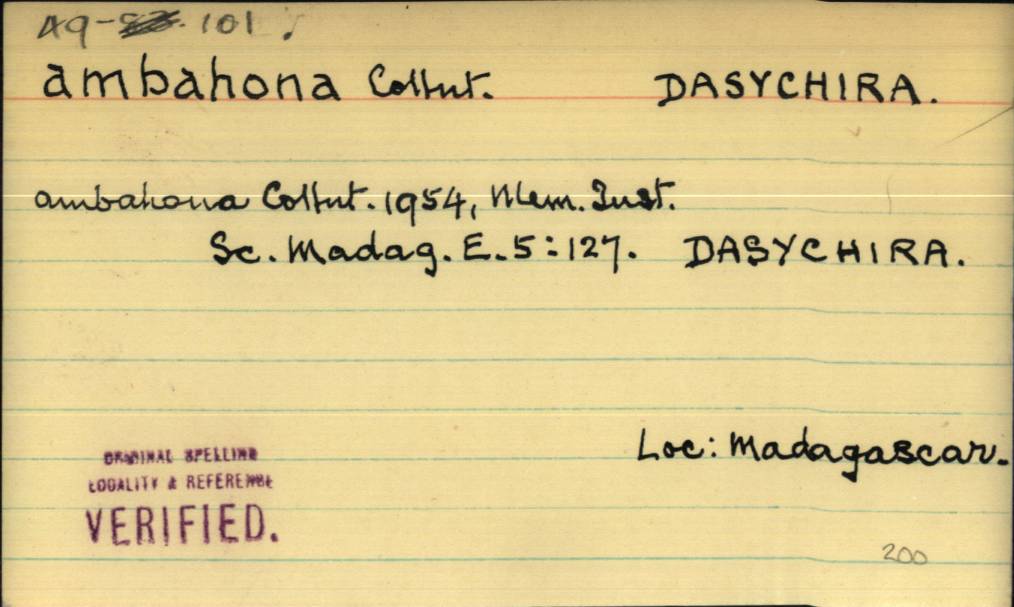 A9- 101.
ambahona Collnt. DASYCHIRA.
ambahona Collnt. 1954, Mem. Inst.
Sc. Madag. E. 5:127. DASYCHIRA.
Loc: Madagascar.
ORIGINAL SPELLING
LOCALITY & REFERENCE
VERIFIED.
200